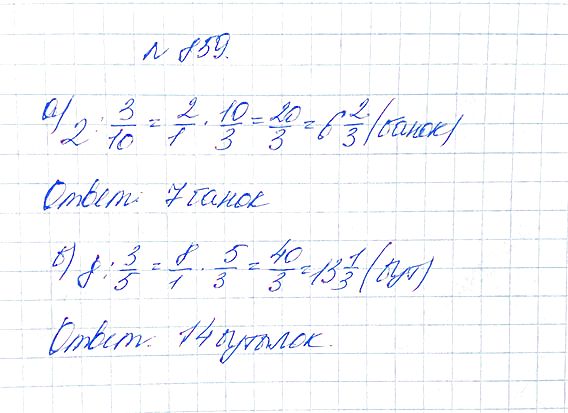 № 859.
а) 2 : 3/10 = 2/1 · 10/3 = 20/3 = 6 2/3 (банок)
Ответ: 7 банок
б) 8 : 3/5 = 8/1 · 5/3 = 40/3 = 13 1/3 (бут)
Ответ: 14 бутылок.